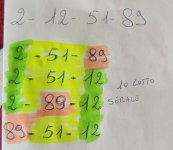 2 - 12 - 51 - 89
2 - 51 - 89
2 - 51 - 12
10 LOTTO
2 - 89 - 12
SERALE
89 - 51 - 12